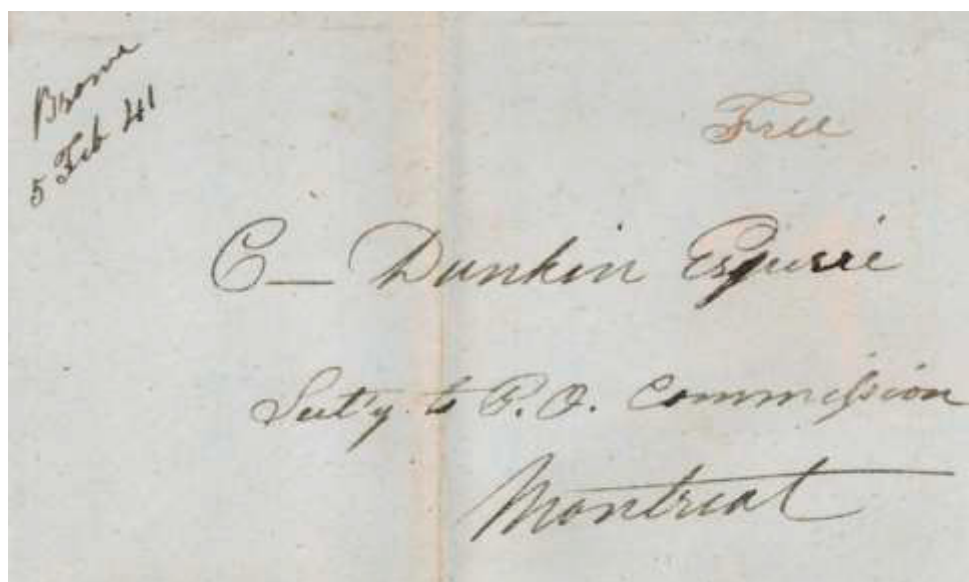 Brome
5 Feb 41
Free
C— Dunkin Esquire
Sect'y to P.O. Commission
Montreal